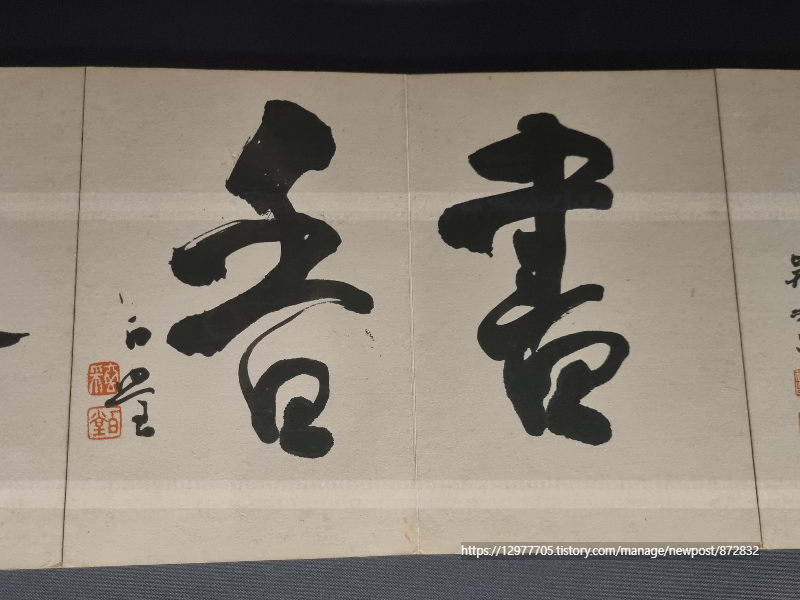 書香
白堂
https://12977705.tistory.com/manage/newpost/872832